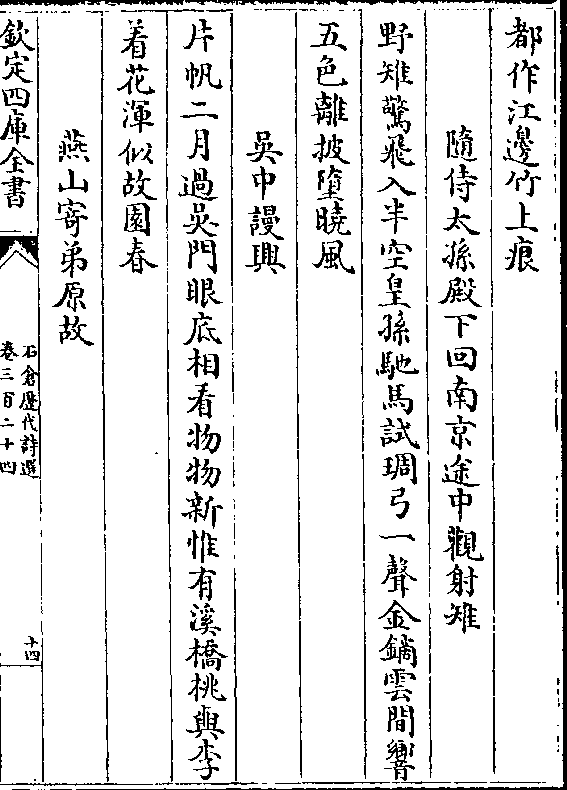 都作江邊竹上痕
隨侍太孫殿下回南京途中觀射雉
野雉驚飛入半空皇孫馳馬試琱弓一聲金鏑雲間響
五色離披墮曉風
吳中謾興
片帆二月過吳門眼底相看物物新惟有溪橋桃與李
着花渾似故園春
燕山寄弟原故
欽定四庫全書
石倉歷代詩選
卷三百二十四
十四